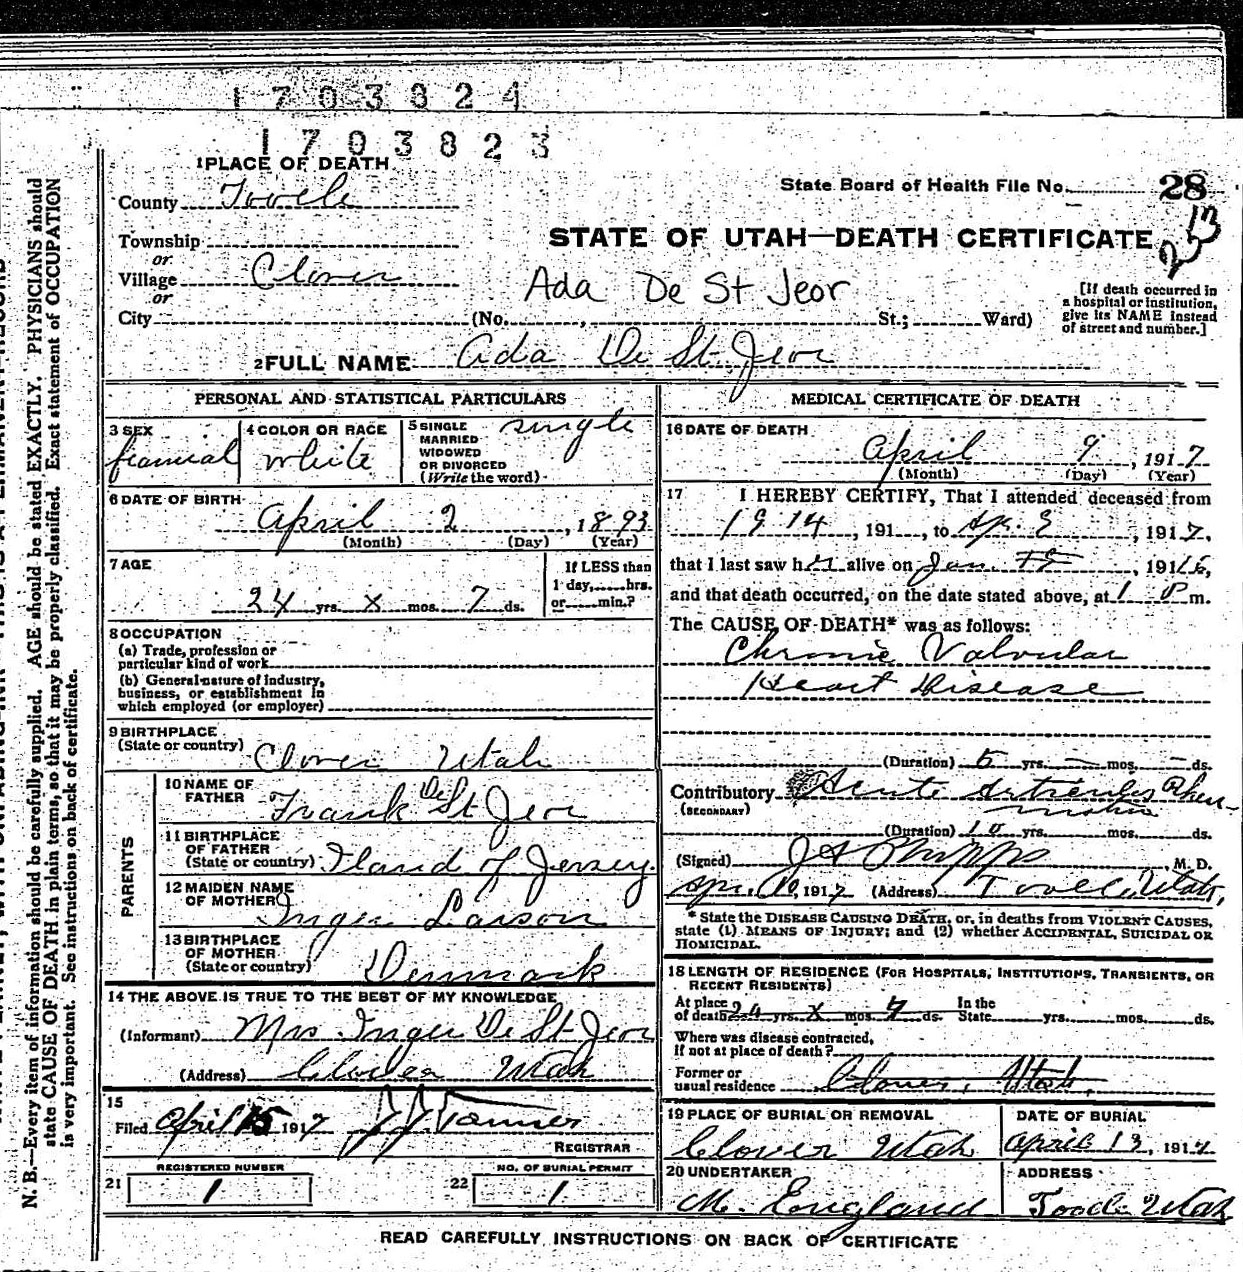 1703824
1703823
1 PLACE OF DEATH
County Tooele
State Board of Health File No. 28
213
Township
or
Village Clover
or
STATE OF UTAH—DEATH CERTIFICATE
Ada De St Jeor
[If death occurred in a hospital or institution, give its NAME instead of street and number.]
City (No. , St.; Ward)
2 FULL NAME Ada De St. Jeor
PERSONAL AND STATISTICAL PARTICULARS
3 SEX feamial
4 COLOR OR RACE white
5 SINGLE MARRIED WIDOWED OR DIVORCED (Write the word) single
6 DATE OF BIRTH
April 2, 1893
(Month) (Day) (Year)
7 AGE
24 yrs. x mos. 7 ds.
If LESS than 1 day, hrs. or min.?
8 OCCUPATION
(a) Trade, profession or particular kind of work
(b) General nature of industry, business, or establishment in which employed (or employer)
9 BIRTHPLACE
(State or country) Clover Utah
PARENTS
10 NAME OF FATHER Frank De St Jeor
11 BIRTHPLACE OF FATHER
(State or country) Iland of Jersey
12 MAIDEN NAME OF MOTHER Inger Larson
13 BIRTHPLACE OF MOTHER
(State or country) Denmark
14 THE ABOVE IS TRUE TO THE BEST OF MY KNOWLEDGE
(Informant) Mrs. Inger De St Jeor
(Address) Clover Utah
15
Filed April 15 1917 J. J. Tanner
REGISTRAR
REGISTERED NUMBER
21 1
NO. OF BURIAL PERMIT
22 1
MEDICAL CERTIFICATE OF DEATH
16 DATE OF DEATH
April 9, 1917
(Month) (Day) (Year)
17 I HEREBY CERTIFY, That I attended deceased from
1914, 191 , to Ap. , 1917,
that I last saw h alive on Jan. , 191 ,
and that death occurred, on the date stated above, at 1 P m.
The CAUSE OF DEATH* was as follows:
Chronic Valvular
Heart Disease
(Duration) 5 yrs. — mos. — ds.
Contributory Acute Articular Rheu-
(SECONDARY) matism
(Duration) 10 yrs. mos. ds.
(Signed) J A Phipps M. D.
Apr. 10, 1917 (Address) Tooele, Utah,
* State the DISEASE CAUSING DEATH, or, in deaths from VIOLENT CAUSES, state (1) MEANS OF INJURY; and (2) whether ACCIDENTAL, SUICIDAL OR HOMICIDAL.
18 LENGTH OF RESIDENCE (FOR HOSPITALS, INSTITUTIONS, TRANSIENTS, OR RECENT RESIDENTS)
At place of death 24 yrs. X mos. 7 ds. In the State yrs. mos. ds.
Where was disease contracted, If not at place of death?
Former or usual residence Clover, Utah,
19 PLACE OF BURIAL OR REMOVAL
Clover Utah
DATE OF BURIAL
April 13, 1917
20 UNDERTAKER
M. England
ADDRESS
Tooele Utah
READ CAREFULLY INSTRUCTIONS ON BACK OF CERTIFICATE
N. B.—Every item of information should be carefully supplied. AGE should be stated EXACTLY. PHYSICIANS should
state CAUSE OF DEATH in plain terms, so that it may be properly classified. Exact statement of OCCUPATION
is very important. See instructions on back of certificate.